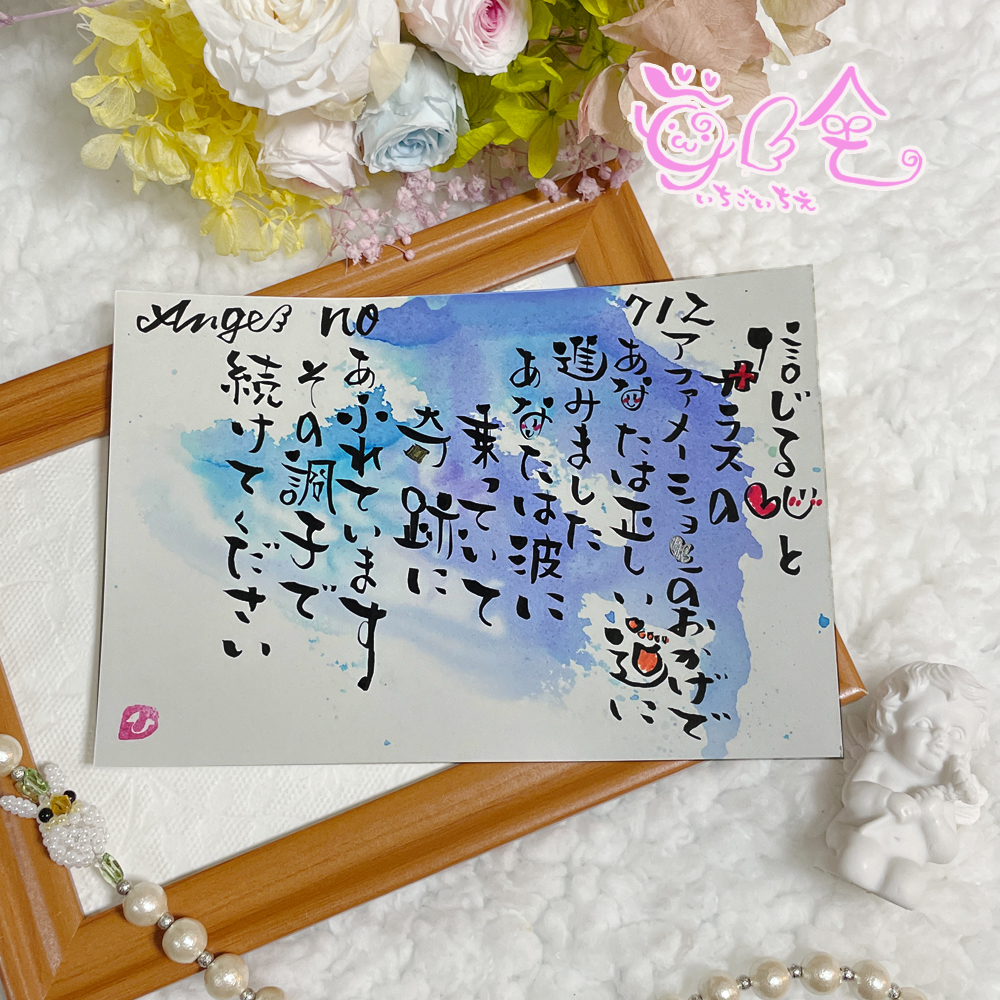 Angel no 712
信じる心と
プラスの
アファメーションのおかげで
あなたは正しい道に
進みました
あなたは波に
乗っていて
奇跡に
あふれています
その調子で
続けてください
いちごいちえ